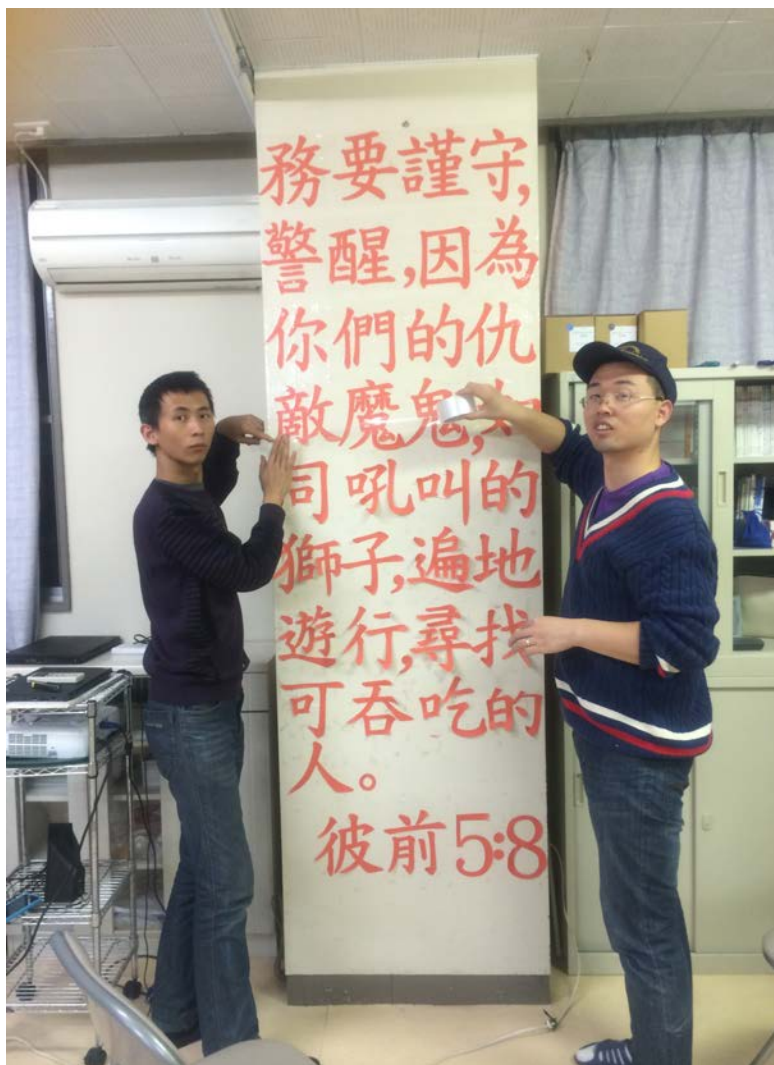 務要謹守,
警醒,因為
你們的仇
敵魔鬼,如
同吼叫的
獅子,遍地
遊行,尋找
可吞吃的
人。
彼前5:8